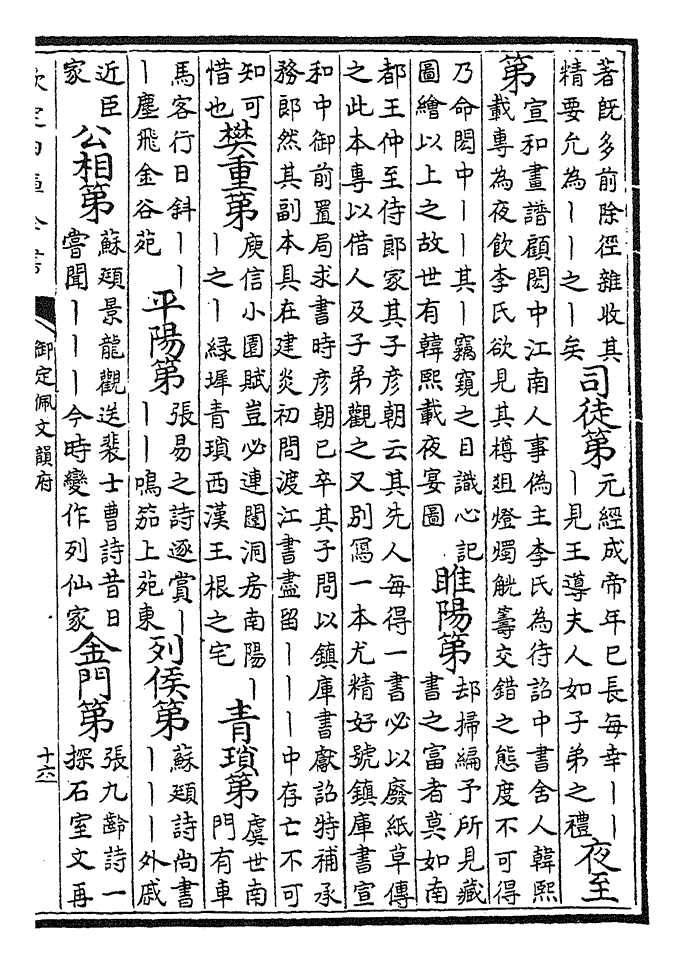 著既多前除徑雜收其
精要允為丨丨之丨矣
司徒第
元經成帝年已長每幸丨丨
丨見王導夫人如子弟之禮
夜至
第
宣和畫譜顧閎中江南人事偽主李氏為待詔中書舍人韓熙
載專為夜飲李氏欲見其樽俎燈燭觥籌交錯之態度不可得
乃命閎中丨丨其丨竊窺之目識心記
圖繪以上之故世有韓熙載夜宴圖
睢陽第
却掃編予所見藏
書之富者莫如南
都王仲至侍郎家其子彦朝云其先人每得一書必以廢紙草傳
之此本專以借人及子弟觀之又别寫一本尤精好號鎮庫書宣
和中御前置局求書時彦朝已卒其子問以鎮庫書獻詔特補承
務郎然其副本具在建炎初問渡江書盡留丨丨丨中存亡不可
知可
惜也
樊重第
庾信小園賦豈必連闥洞房南陽丨
丨之丨緑墀青瑣西漢王根之宅
青瑣第
虞世南
門有車
馬客行日斜丨丨
丨塵飛金谷苑
平陽第
張易之詩逐賞丨
丨丨鳴笳上苑東
列侯第
蘇頲詩尚書
丨丨丨外戚
近臣
家
公相第
蘇頲景龍觀送裴士曹詩昔日
嘗聞丨丨丨今時變作列仙家
金門第
張九齡詩一
探石室文再
欽定四庫全書
御定佩文韻府
十六